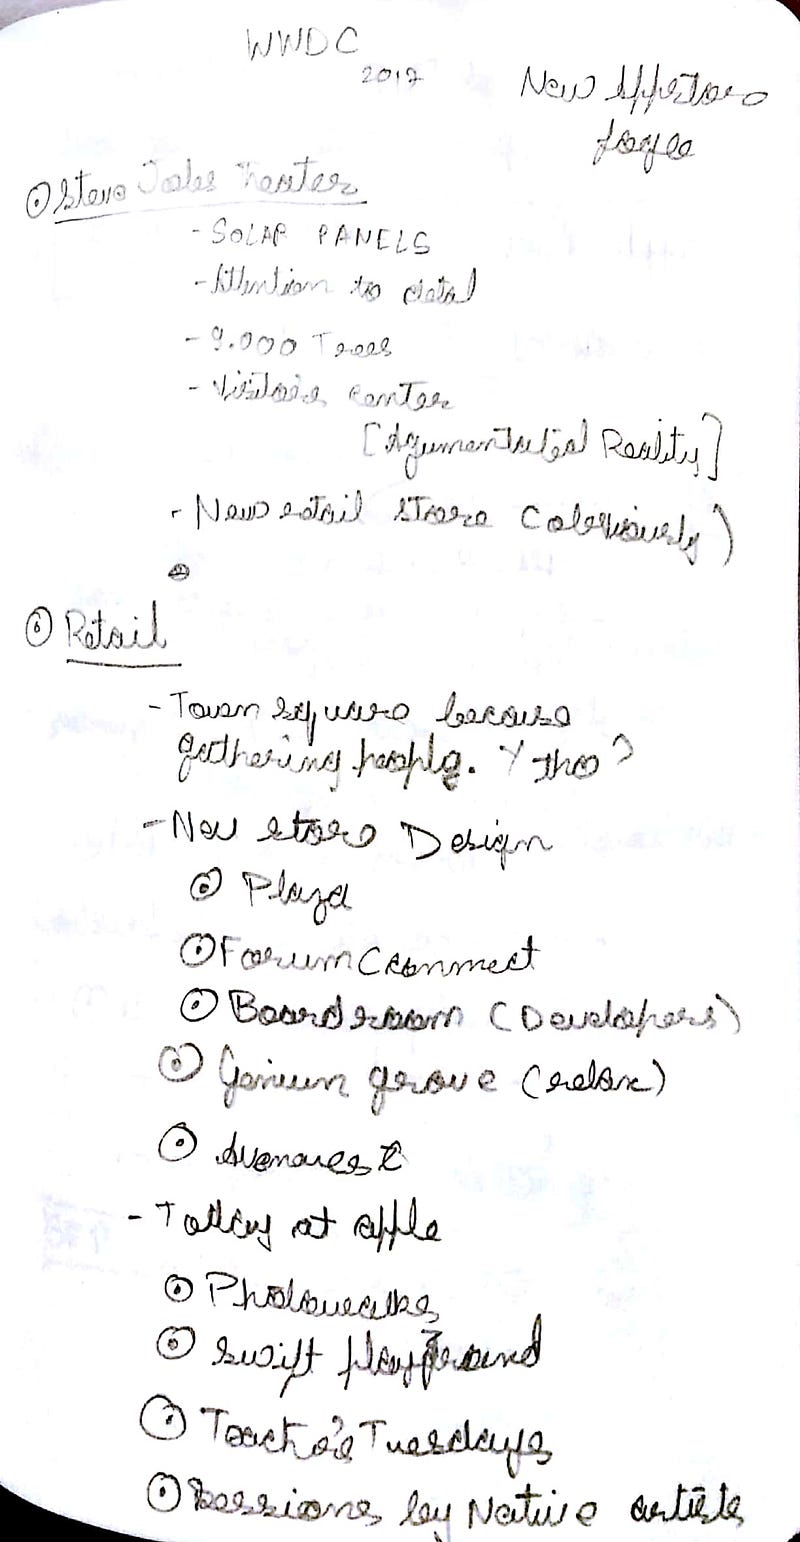 WWDC
2017
New Appstore
page
Steve Jobs Theater
- SOLAR PANELS
- Attention to detail
- 9.000 Trees
- Visitors center
[Agumentated Reality]
- New retail store (obviously)
Retail
- Town square because
gathering people. Y tho?
- New store Design
Plaza
Forum Connect
Boardroom (Developers)
Genius grove (relax)
Avenues
- Today at apple
Photowalks
Swift playground
Teacher's Tuesdays
Sessions by Native artists